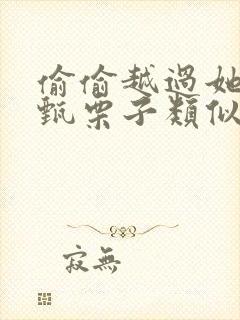 偷偷越過她
甄栗子類似
寂無